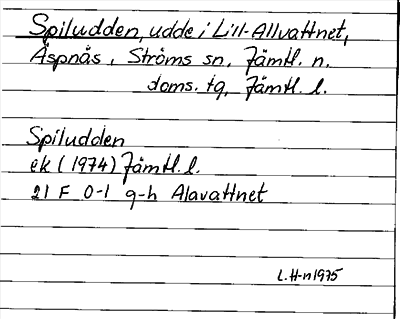 Spiludden, udde i Lill-Allvattnet,
Äspnäs, Ströms sn, Jämtl. n.
doms. tg, Jämtl. l.
Spiludden
ek (1974) Jämtl. l.
21 F 0-1 g-h Alavattnet
L.H-n 1975